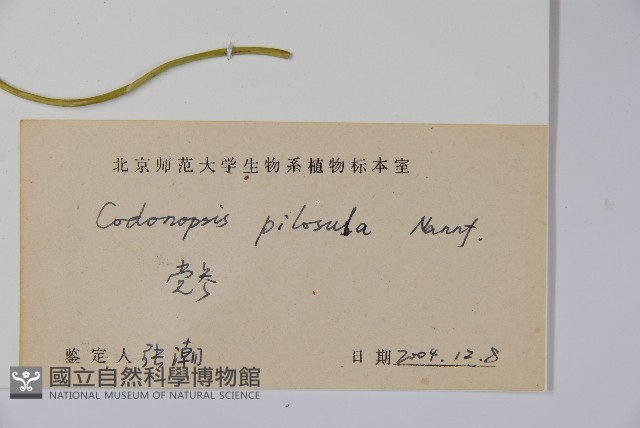 北京师范大学生物系植物标本室
Codonopsis pilosula Nannf.
党参
鉴定人 张潮 日期 2004.12.8
國立自然科學博物館
NATIONAL MUSEUM OF NATURAL SCIENCE